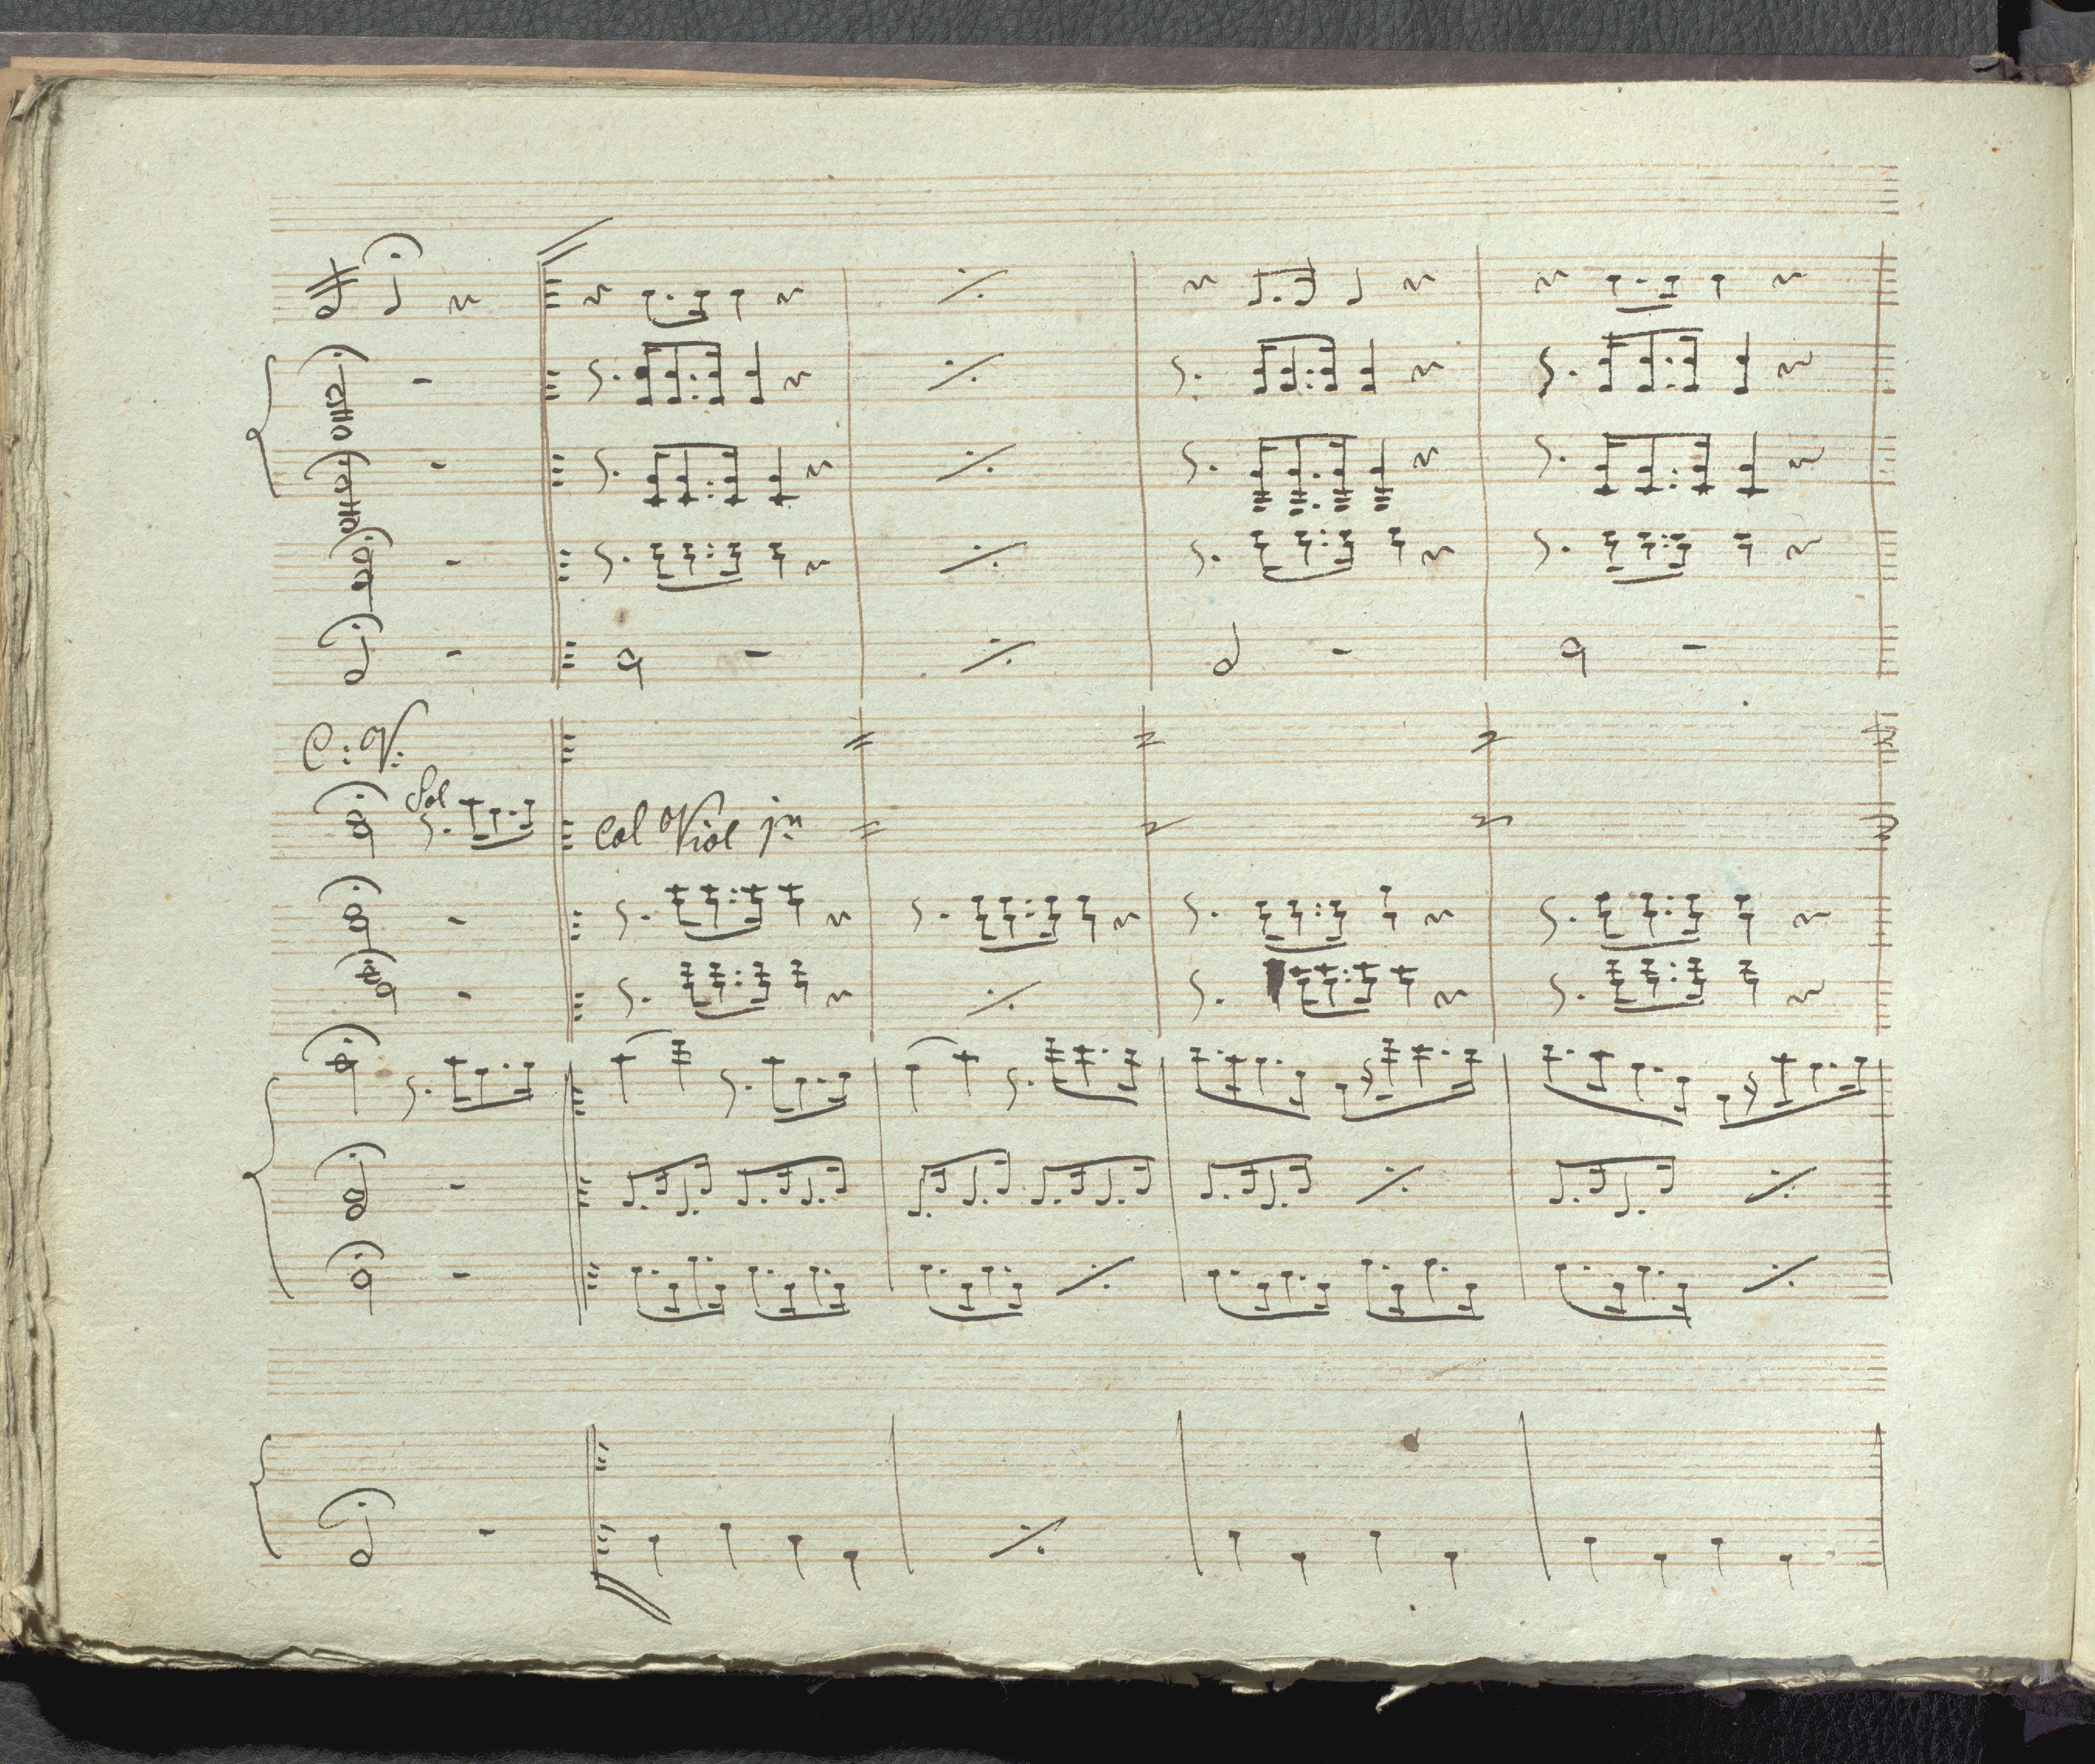 C: V:
Sol
Col Viol